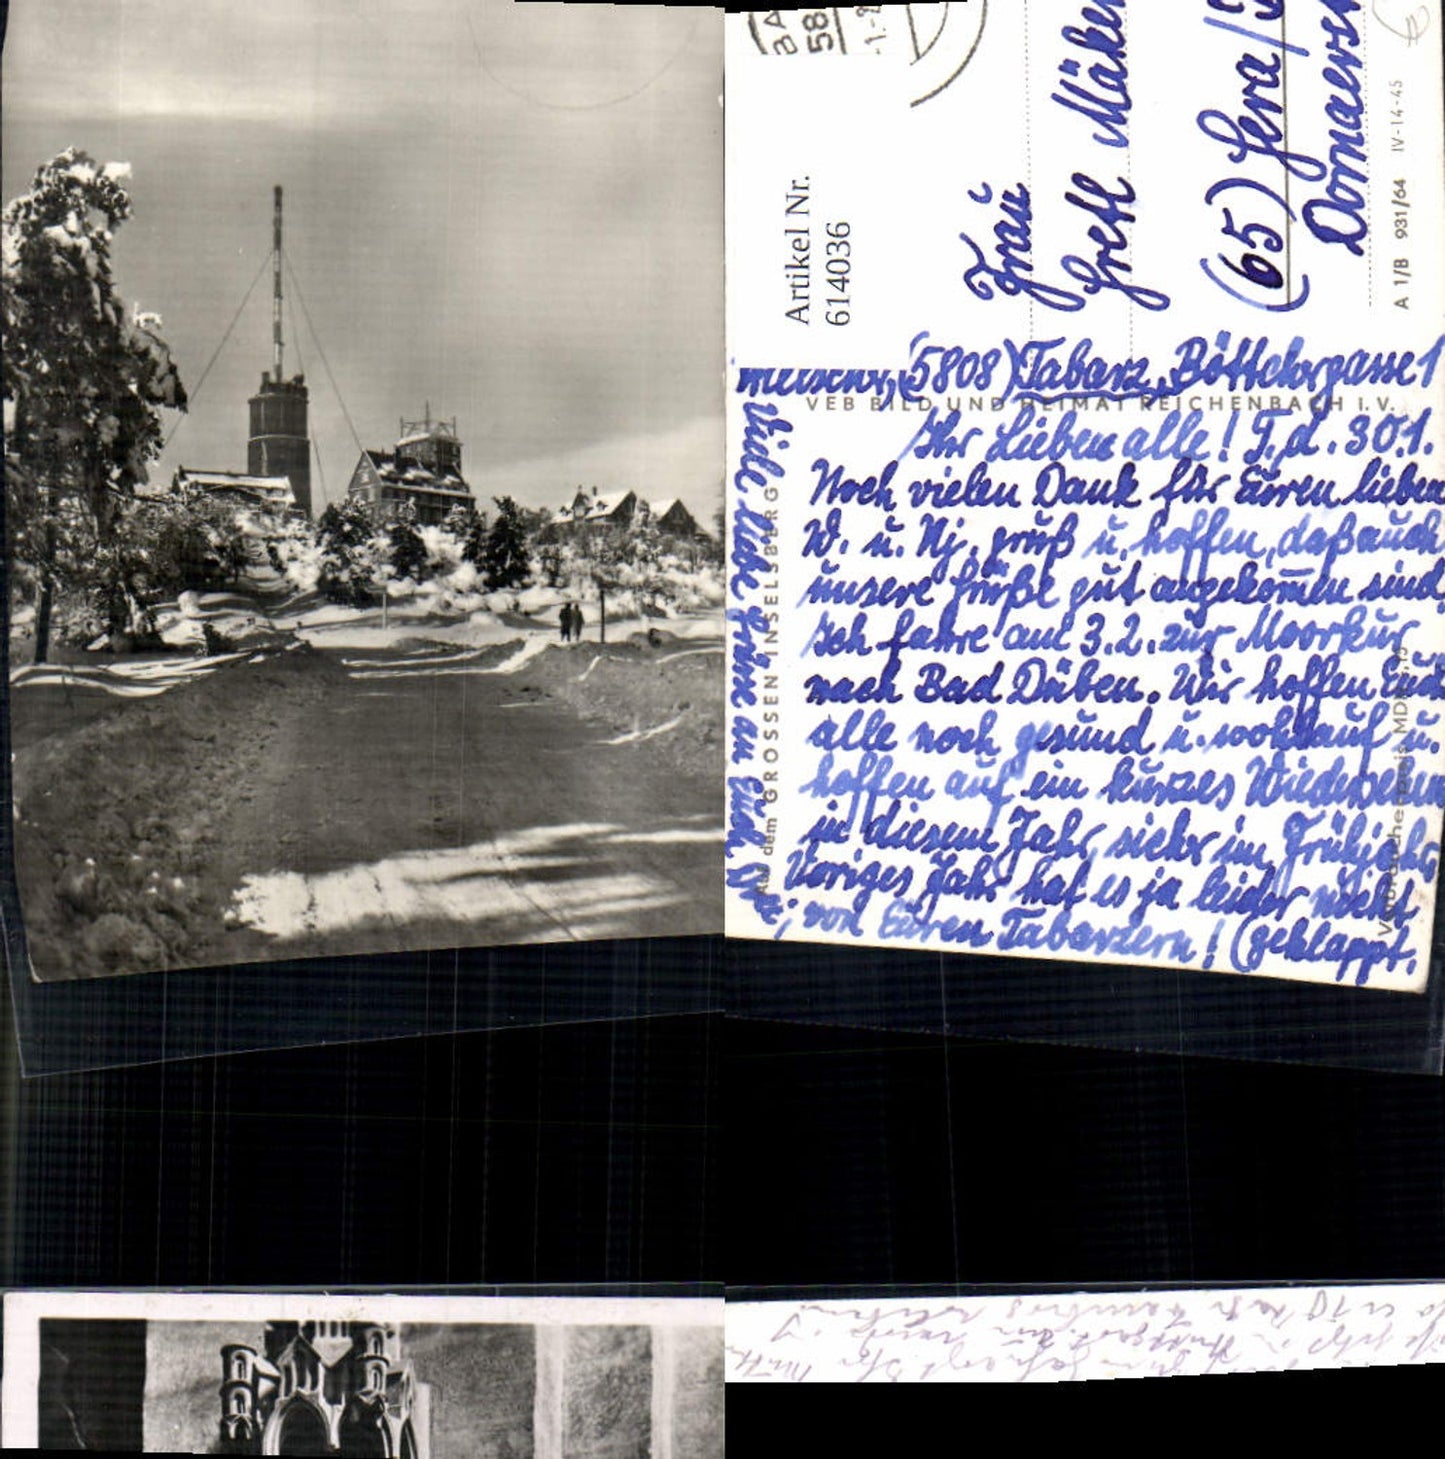 BA
58
-1.-8
Artikel Nr.
614036
Frau
Gretl Mäker
(65) Gera/
Dornaerst
A 1/B 931/64 IV-14-45
(5808) Tabarz, Böttchergasse 1
VEB BILD UND HEIMAT REICHENBACH I.V.
Ihr Lieben alle! T. d. 30.1.
Noch vielen Dank für Euren lieben
W. u. Nj. gruß u. hoffen, daß auch
unsere Grüße gut angekom̄en sind,
Ich fahre am 3.2. zur Moorkur
nach Bad Düben. Wir hoffen Euch
alle noch gesund u. wohlauf u.
hoffen auf ein kurzes Wiedersehen
in diesem Jahr, sicher im Frühjahr,
Voriges Jahr hat es ja leider nicht
von Euren Tabarzern! (geklappt.
Viele liebe Grüße an Euch
dem GROSSEN INSELSBERG